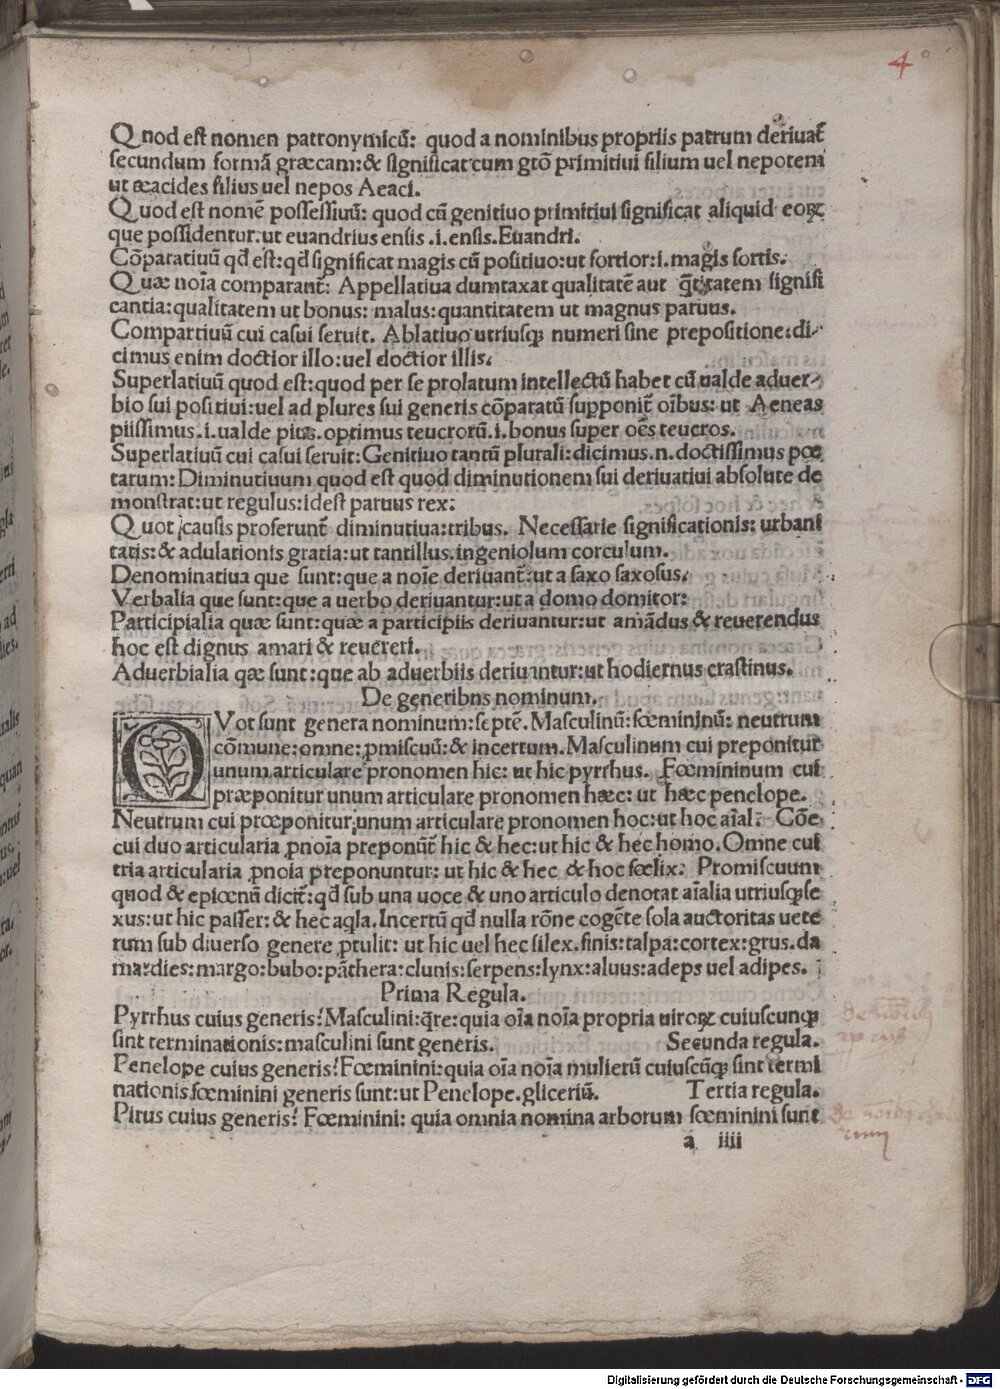 4
Quod est nomen patronymicū: quod a nominibus propriis patrum deriuat̄
secundum formā græcam: & significat cum gtō primitiui filium uel nepotem
ut æacides filius uel nepos Aeaci.
Quod est nomē possessiuū: quod cū genitiuo primitiui significat aliquid eoꝝ
que possidentur: ut euandrius ensis .i. ensis. Euandri.
Cōparatiuū qd̄ est: qd̄ significat magis cū positiuo: ut fortior: i. magis fortis.
Quæ noīa comparant̄: Appellatiua dumtaxat qualitatē aut q̄titatem signifi
cantia: qualitatem ut bonus: malus: quantitatem ut magnus paruus.
Compartiuū cui casui seruit. Ablatiuo utriusqꝫ numeri sine prepositione: di-
cimus enim doctior illo: uel doctior illis.
Superlatiuū quod est: quod per se prolatum intellectū habet cū ualde aduer-
bio sui positiui: uel ad plures sui generis cōparatū supponit̄ oībus: ut Aeneas
piissimus .i. ualde pius. optimus teucrorū .i. bonus super oēs teucros.
Superlatiuū cui casui seruit: Genitiuo tantū plurali: dicimus .n. doctissimus poe
tarum: Diminutiuum quod est quod diminutionem sui deriuatiui absolute de
monstrat: ut regulus: idest paruus rex:
Quot causis proferunt̄ diminutiua: tribus. Necessarie significationis: urbani
tatis: & adulationis gratia: ut tantillus. ingeniolum corculum.
Denominatiua que sunt: que a noīe deriuant̄: ut a saxo saxosus.
Verbalia que sunt: que a uerbo deriuantur: ut a domo domitor:
Participialia quæ sunt: quæ a participiis deriuantur: ut amādus & reuerendus
hoc est dignus amari & reuereri.
Aduerbialia qæ sunt: que ab aduerbiis deriuantur: ut hodiernus crastinus.
De generibns nominum.
QVot sunt genera nominum: septē. Masculinū: fœmininū: neutrum
cōmune: omne: ꝓmiscuū: & incertum. Masculinum cui preponitur
unum articulare pronomen hic: ut hic pyrrhus. Fœmininum cui
præponitur unum articulare pronomen hæc: ut hæc penelope.
Neutrum cui prœponitur unum articulare pronomen hoc: ut hoc aīal. Cōe
cui duo articularia ꝓnoīa preponūt̄ hic & hec: ut hic & hec homo. Omne cui
tria articularia ꝓnoīa preponuntur: ut hic & hec & hoc fœlix. Promiscuum
quod & epicœnū dicit̄: qd̄ sub una uoce & uno articulo denotat aīalia utriusqꝫ se
xus: ut hic passer: & hec aqla. Incertū qd̄ nulla rōne cogēte sola auctoritas uete
rum sub diuerso genere ꝓtulit: ut hic uel hec silex. finis: talpa: cortex: grus. da
ma: dies: margo: bubo: pāthera: clunis: serpens: lynx: aluus: adeps uel adipes.
Prima Regula.
Pyrrhus cuius generis? Masculini: q̄re: quia oīa noīa propria uiroꝝ cuiuscunqꝫ
sint terminationis: masculini sunt generis. Secunda regula.
Penelope cuius generis? Fœminini: quia oīa noīa mulierū cuiuscūqꝫ sint termi
nationis fœminini generis sunt: ut Penelope. gliceriū. Tertia regula.
Pirus cuius generis? Fœminini: quia omnia nomina arborum fœminini sunt
a iiii
Digitalisierung gefördert durch die Deutsche Forschungsgemeinschaft - DFG